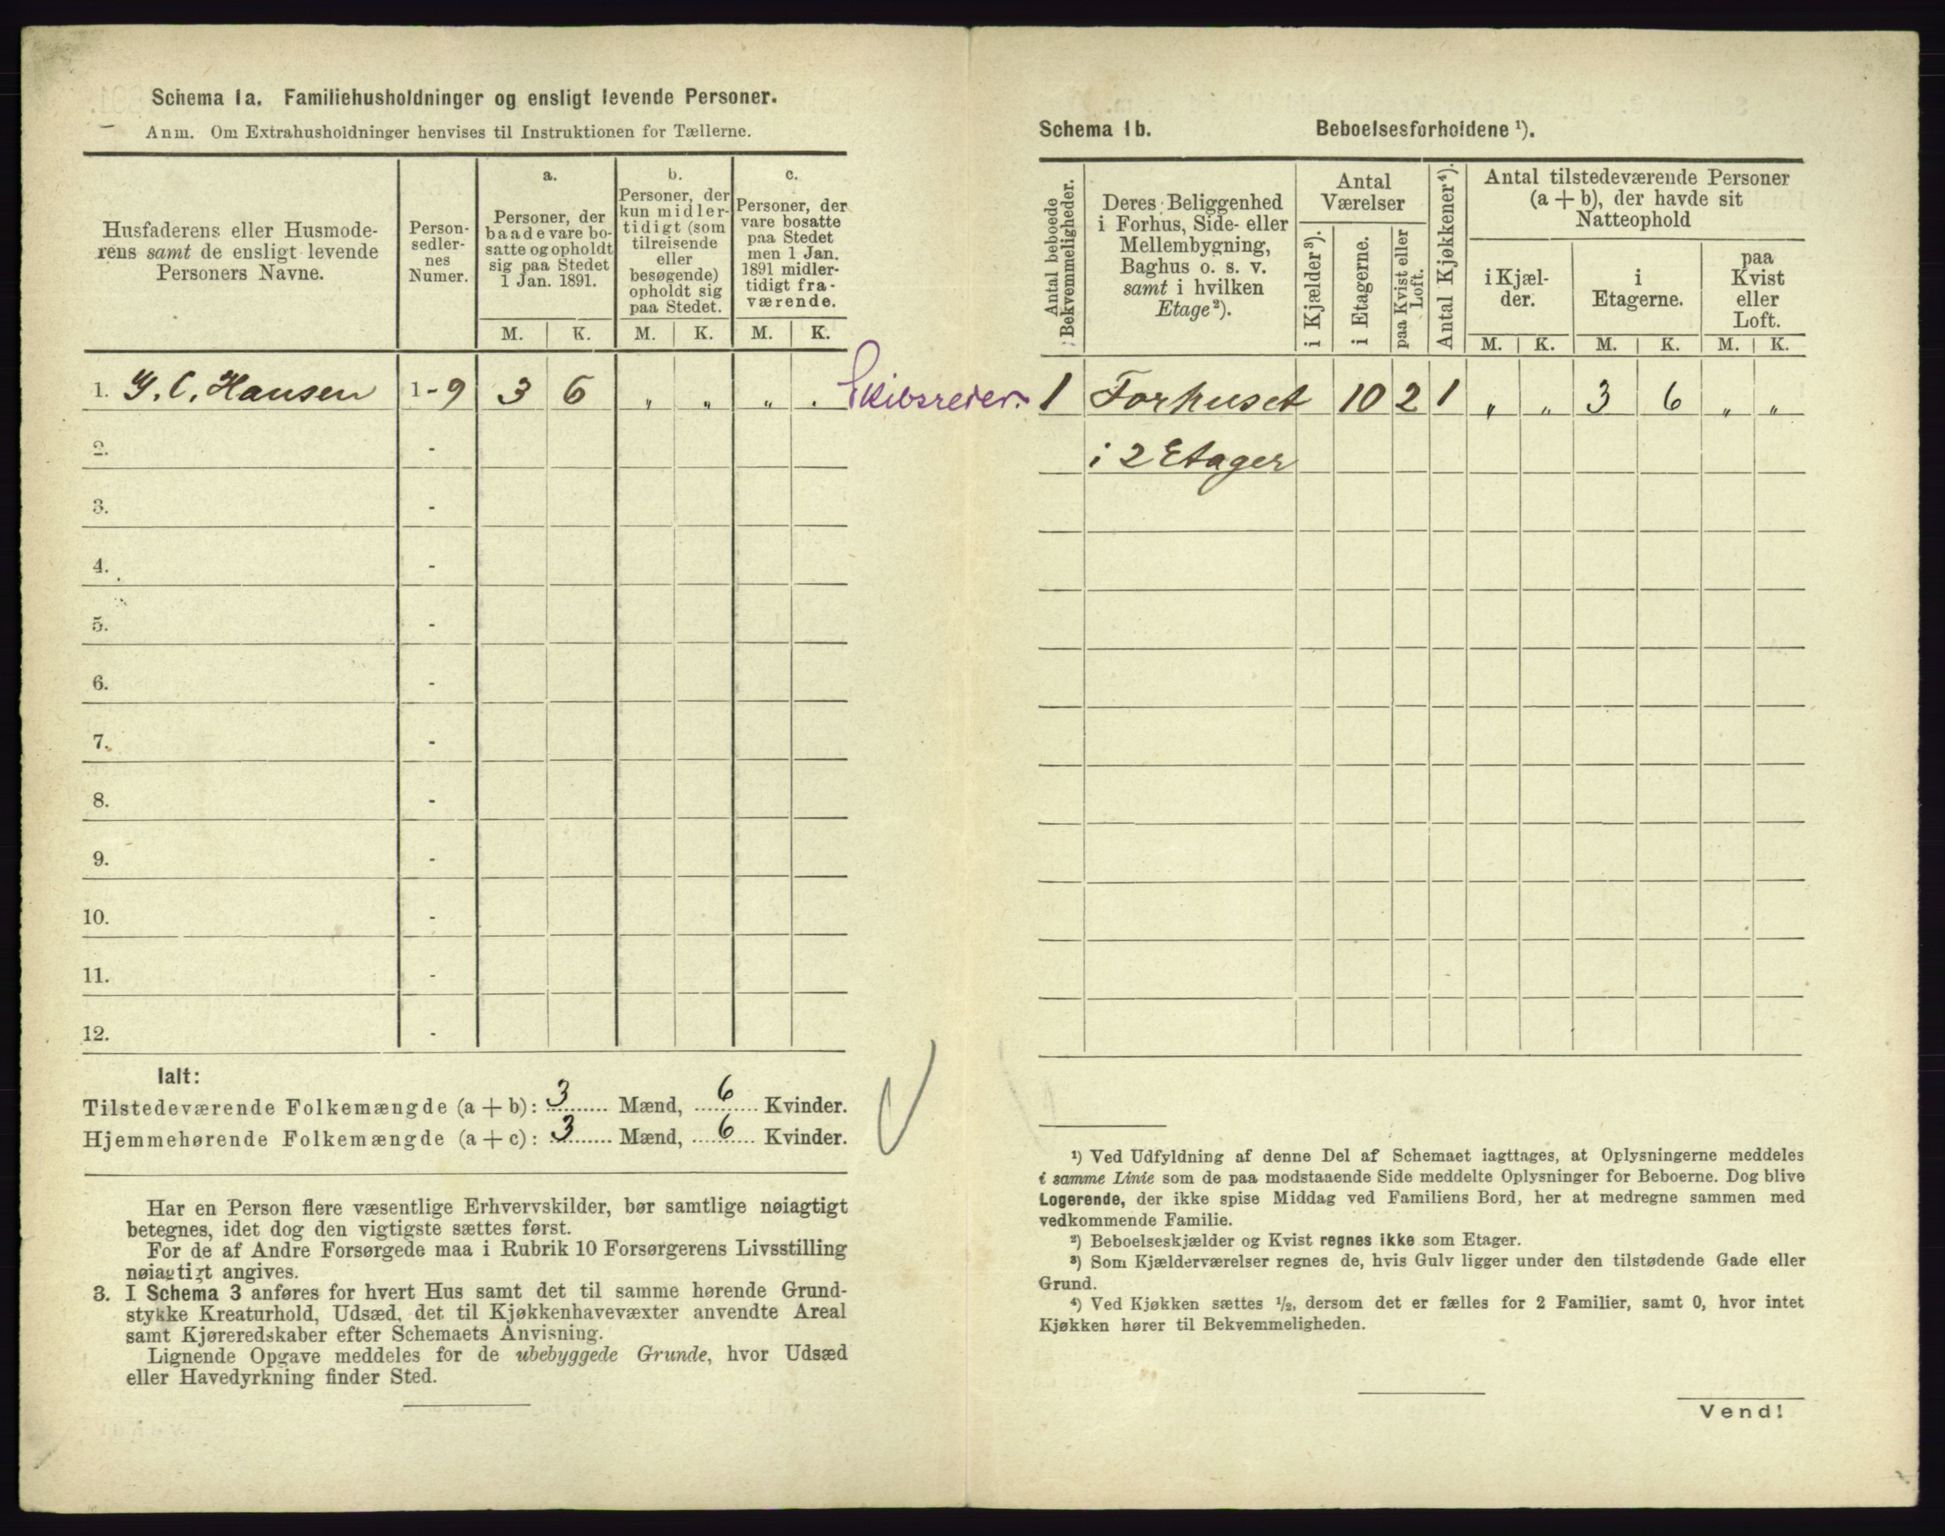 Schema 1a. Familiehusholdninger og ensligt levende Personer.
Anm. Om Extrahusholdninger henvises til Instruktionen for Tællerne.
Husfaderens eller Husmoderens samt de ensligt levende Personers Navne.
Personsedlernes Numer.
a.
Personer, der baade vare bosatte og opholdt sig paa Stedet 1 Jan. 1891.
b.
Personer, der kun midlertidigt (som tilreisende eller besøgende) opholdt sig paa Stedet.
c.
Personer, der vare bosatte paa Stedet men 1 Jan. 1891 midlertidigt fraværende.
M. K. M. K. M. K.
1. G. C. Hansen 1-9 3 6 „ „ „ . Skibsreder.
2. -
3. -
4. -
5. -
6. -
7. -
8. -
9. -
10. -
11. -
12. -
Ialt:
Tilstedeværende Folkemængde (a + b): 3 Mænd, 6 Kvinder.
Hjemmehørende Folkemængde (a + c): 3 Mænd, 6 Kvinder.
Har en Person flere væsentlige Erhvervskilder, bør samtlige nøiagtigt
betegnes, idet dog den vigtigste sættes først.
For de af Andre Forsørgede maa i Rubrik 10 Forsørgerens Livsstilling
nøiagtigt angives.
3. I Schema 3 anføres for hvert Hus samt det til samme hørende Grund-
stykke Kreaturhold, Udsæd, det til Kjøkkenhavevæxter anvendte Areal
samt Kjøreredskaber efter Schemaets Anvisning.
Lignende Opgave meddeles for de ubebyggede Grunde, hvor Udsæd
eller Havedyrkning finder Sted.
Schema 1b. Beboelsesforholdene ¹).
Antal beboede Bekvemmeligheder.
Deres Beliggenhed i Forhus, Side- eller Mellembygning, Baghus o. s. v. samt i hvilken Etage ²).
Antal Værelser
i Kjælder ³).
i Etagerne.
paa Kvist eller Loft.
Antal Kjøkkener ⁴).
Antal tilstedeværende Personer (a + b), der havde sit Natteophold
i Kjælder.
i Etagerne.
paa Kvist eller Loft.
M. K. M. K. M. K.
1 Forhuset 10 2 1 „ „ 3 6 „ „
i 2 Etager
¹) Ved Udfyldning af denne Del af Schemaet iagttages, at Oplysningerne meddeles
i samme Linie som de paa modstaaende Side meddelte Oplysninger for Beboerne. Dog blive
Logerende, der ikke spise Middag ved Familiens Bord, her at medregne sammen med
vedkommende Familie.
²) Beboelseskjælder og Kvist regnes ikke som Etager.
³) Som Kjælderværelser regnes de, hvis Gulv ligger under den tilstødende Gade eller
Grund.
⁴) Ved Kjøkken sættes ½, dersom det er fælles for 2 Familier, samt 0, hvor intet
Kjøkken hører til Bekvemmeligheden.
Vend!